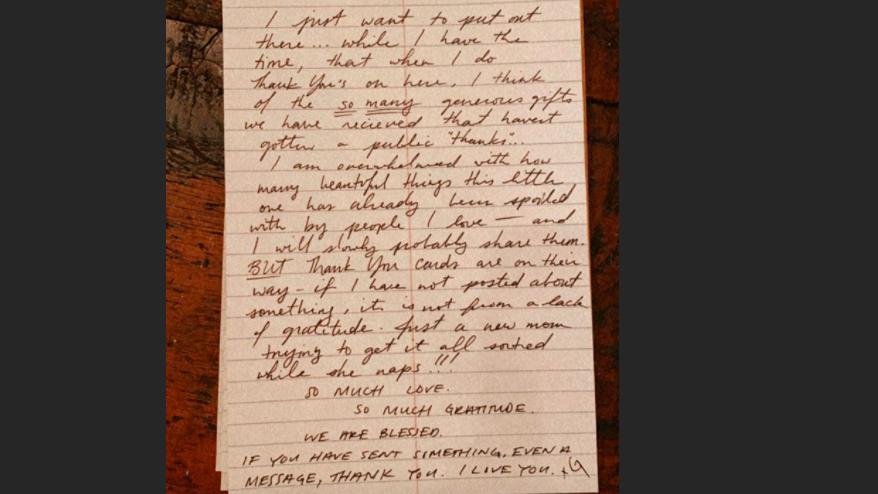 I just want to put out
there... while I have the
time, that when I do
Thank You's on here, I think
of the so many generous gifts
we have recieved that havent
gotten a public "thanks"...
I am overwhelmed with how
many beautiful things this little
one has already been spoiled
with by people I love — and
I will slowly probably share them.
BUT Thank You cards are on their
way - if I have not posted about
something, it is not from a lack
of gratitude. Just a new mom
trying to get it all sorted
while she naps!!!
SO MUCH LOVE.
SO MUCH GRATITUDE.
WE ARE BLESSED.
IF YOU HAVE SENT SOMETHING, EVEN A
MESSAGE, THANK YOU. I LOVE YOU. +G